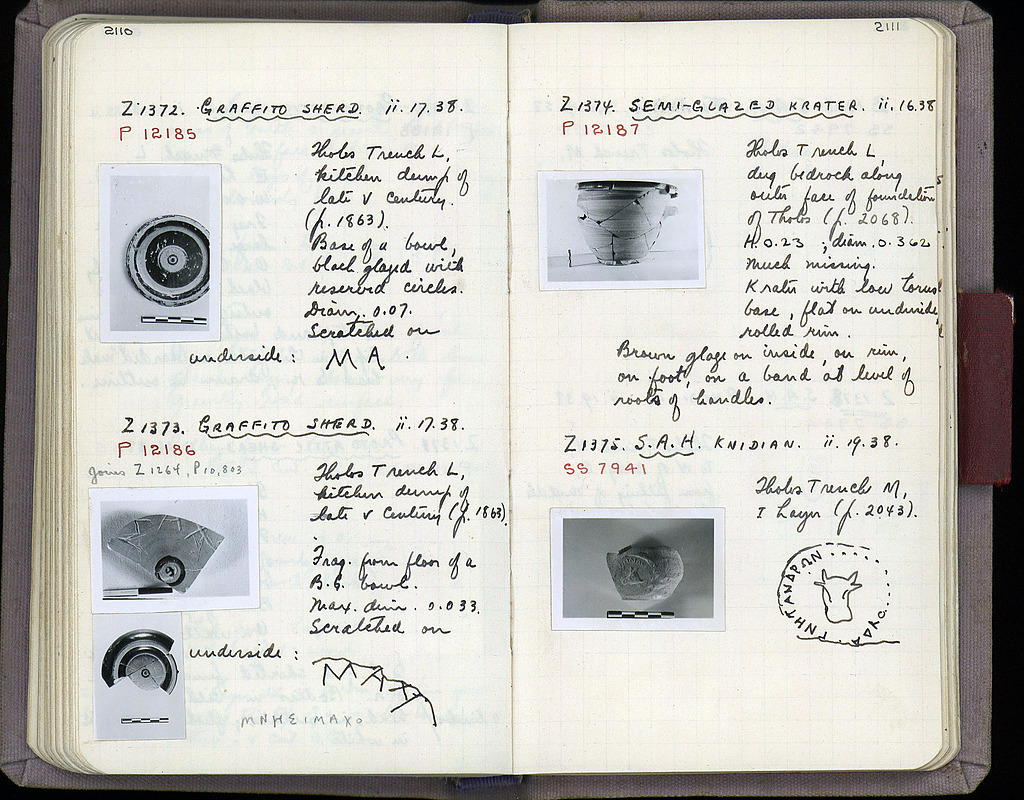 2110
Z 1372. GRAFFITO SHERD. ii. 17. 38.
P 12185
Tholos Trench L,
kitchen dump of
late V century.
(p. 1863).
Base of a bowl,
black glazed with
reserved circles.
Diam. 0.07.
Scratched on
underside : ΜΑ.
Z 1373. GRAFFITO SHERD. ii. 17. 38.
P 12186
joins Z 1264, P 10,803
Tholos Trench L,
kitchen dump of
late V century (p. 1863).
Frag. from floor of a
B.G. bowl.
Max. dim. 0.033.
Scratched on
underside : ΜΑΧ
ΜΝΗΣΙΜΑΧΟ
2111
Z 1374. SEMI-GLAZED KRATER. ii. 16.38
P 12187
Tholos Trench L,
dug bedrock along
outer face of foundation
of Tholos (p. 2068).
H. 0.23 ; diam. 0.362
Much missing.
Krater with low torus
base, flat on underside,
rolled rim.
Brown glaze on inside, on rim,
on foot, on a band at level of
roots of handles.
Z 1375. S.A.H. KNIDIAN. ii. 19. 38.
SS 7941
Tholos Trench M,
I Layer (p. 2043).